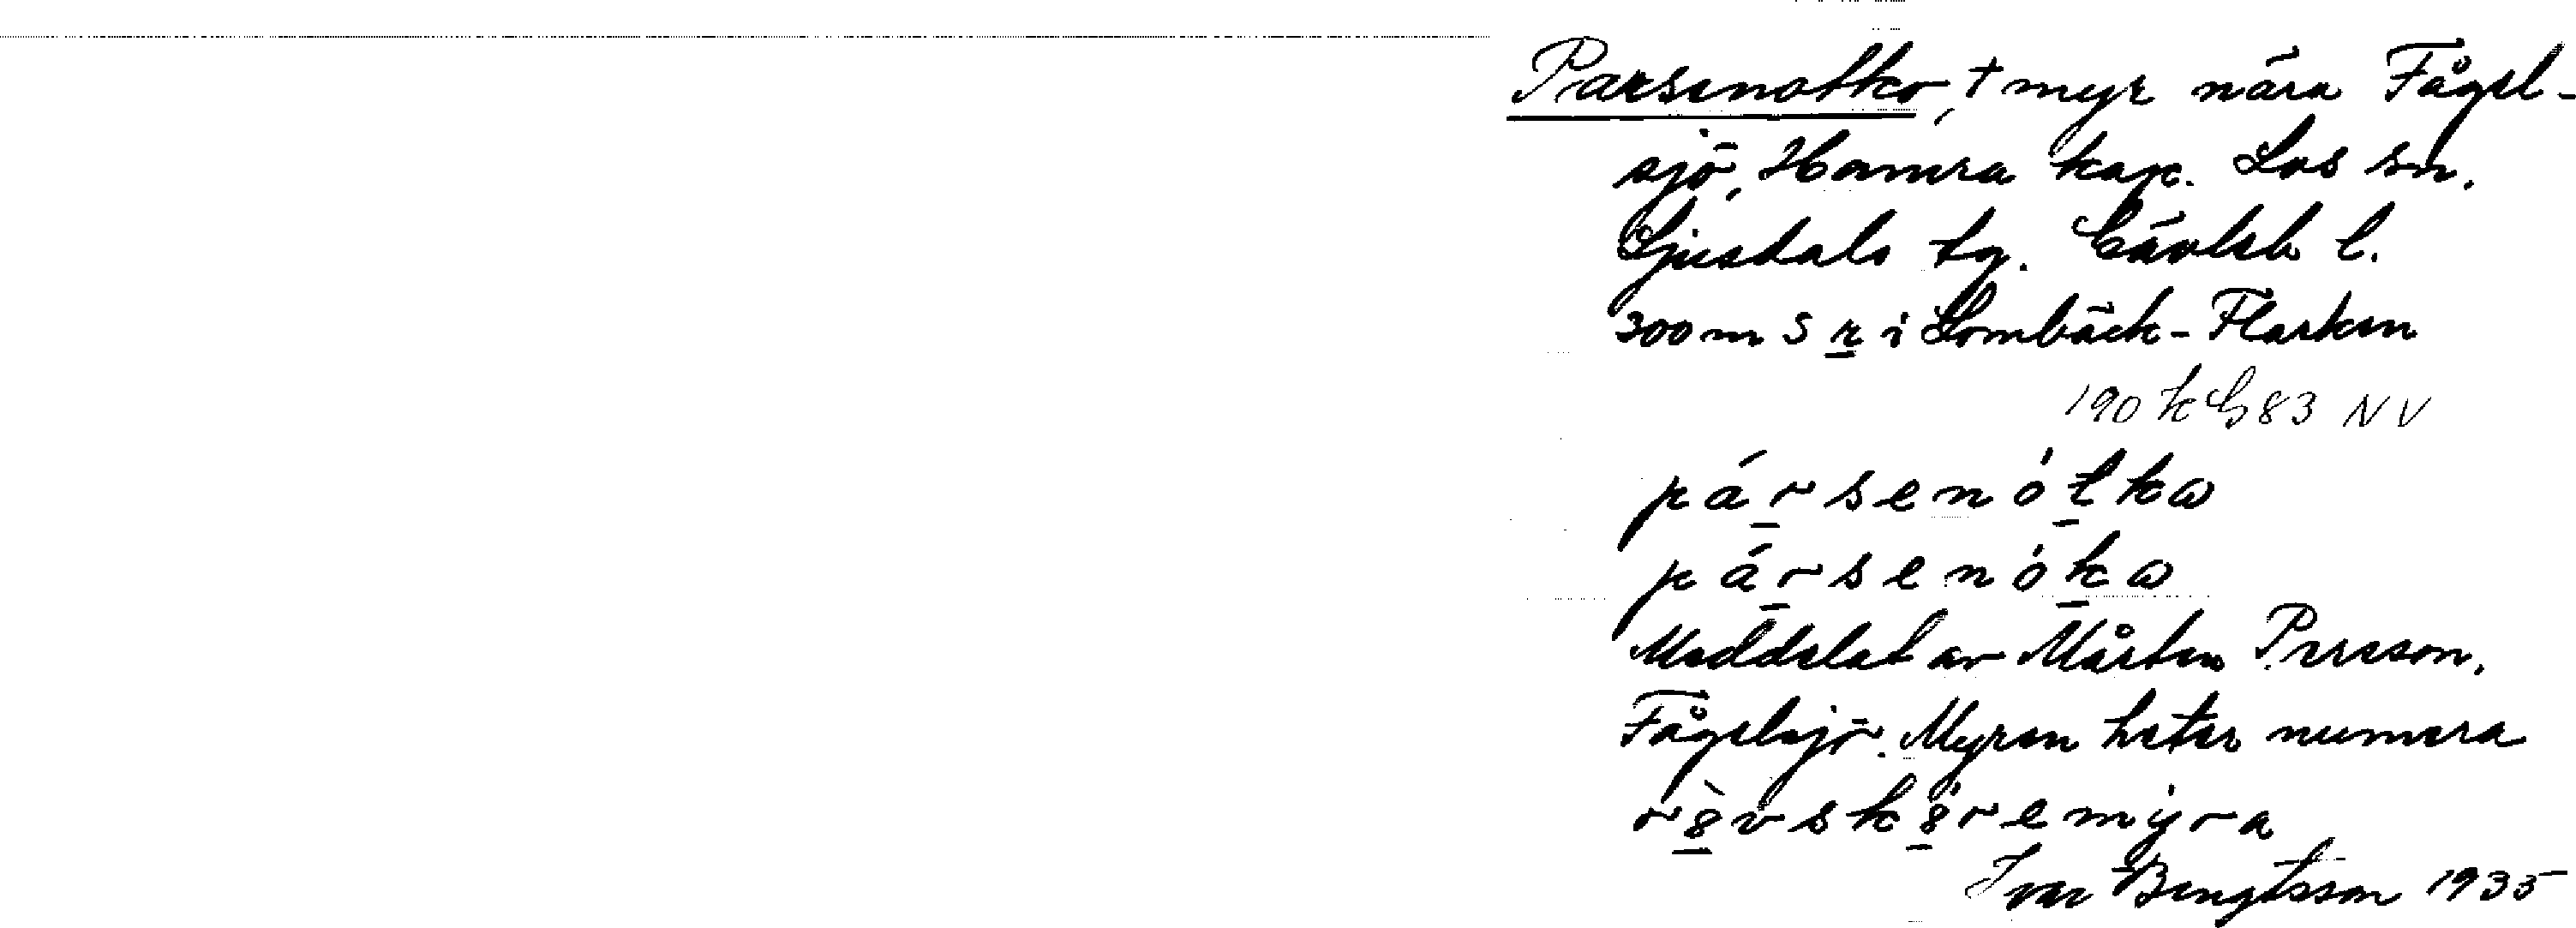 Parsenotko, † myr nära Fågel-
sjö, Hamra kap. Los sn.
Ljusdals tg. Gävleb l.
300 m S r i Lombäck-Flarken
190 k G 83 NV
pársenòtkω
pársenòkω
Meddelat av Mårten Persson,
Fågelsjö. Myren heter numera
rèvskèremýra
Ivar Bengtsson 1935